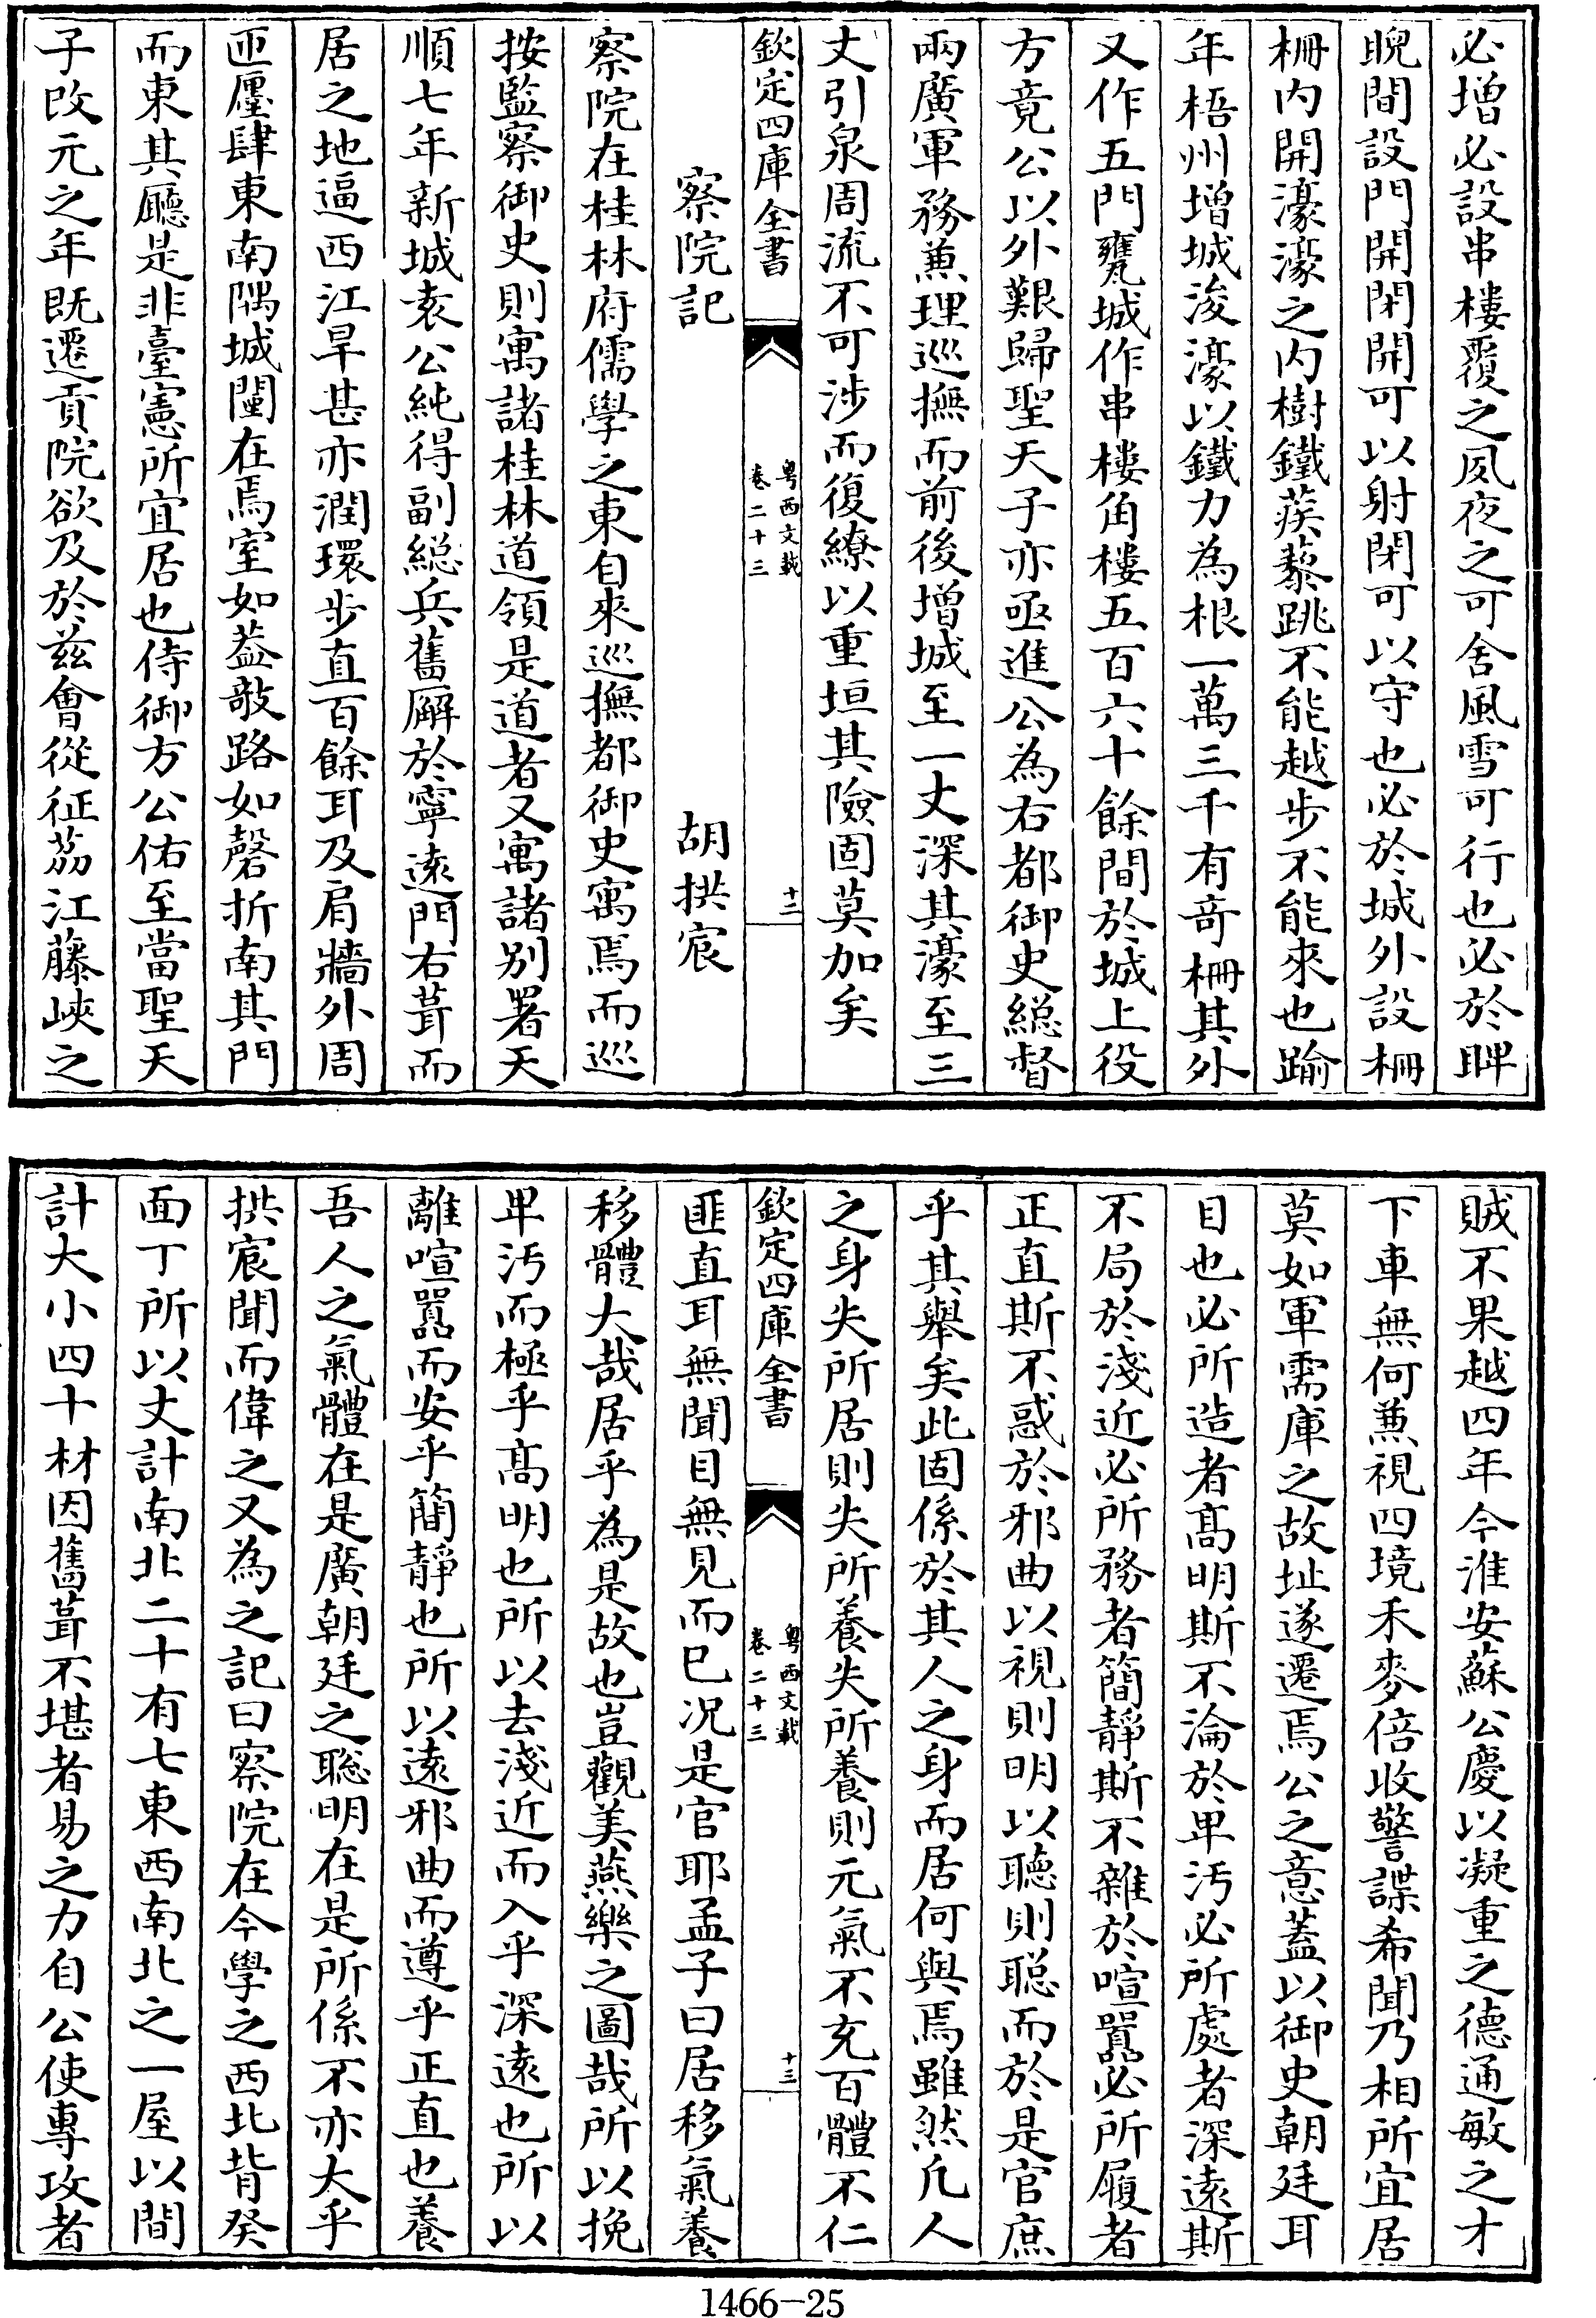 必增必設串樓覆之夙夜之可舍風雪可行也必於睥
睨間設門開閉開可以射閉可以守也必於城外設柵
柵内開濠濠之内樹鐵蒺藜跳不能越步不能來也踰
年梧州增城浚濠以鐵力為根一萬三千有竒柵其外
又作五門甕城作串樓角樓五百六十餘間於城上役
方竟公以外艱歸聖天子亦亟進公為右都御史總督
兩廣軍務兼理巡撫而前後增城至一丈深其濠至三
丈引泉周流不可涉而復繚以重垣其險固莫加矣
欽定四庫全書
粤西文載
卷二十三
十二
察院記
胡拱宸
察院在桂林府儒學之東自來巡撫都御史寓焉而巡
按監察御史則寓諸桂林道領是道者又寓諸别署天
順七年新城袁公純得副總兵舊廨於寧逺門右葺而
居之地逼西江旱甚亦潤環步直百餘耳及肩牆外周
匝廛肆東南隅城闉在焉室如葢敧路如磬折南其門
而東其廳是非臺憲所宜居也侍御方公佑至當聖天
子改元之年既遷貢院欲及於兹會從征荔江藤峽之
賊不果越四年今淮安蘇公慶以凝重之德通敏之才
下車無何兼視四境禾麥倍收警諜希聞乃相所宜居
莫如軍需庫之故址遂遷焉公之意蓋以御史朝廷耳
目也必所造者髙明斯不淪於卑汚必所處者深逺斯
不局於淺近必所務者簡靜斯不雜於喧囂必所履者
正直斯不惑於邪曲以視則明以聽則聰而於是官庶
乎其舉矣此固係於其人之身而居何與焉雖然凡人
之身失所居則失所養失所養則元氣不充百體不仁
欽定四庫全書
粤西文載
卷二十三
十三
匪直耳無聞目無見而已况是官耶孟子曰居移氣養
移體大哉居乎為是故也豈觀美燕樂之圖哉所以挽
卑汚而極乎髙明也所以去淺近而入乎深逺也所以
離喧囂而安乎簡靜也所以逺邪曲而遵乎正直也養
吾人之氣體在是廣朝廷之聰明在是所係不亦大乎
拱宸聞而偉之又為之記曰察院在今學之西北背癸
面丁所以丈計南北二十有七東西南北之一屋以間
計大小四十材因舊葺不堪者易之力自公使專攻者
1466-25